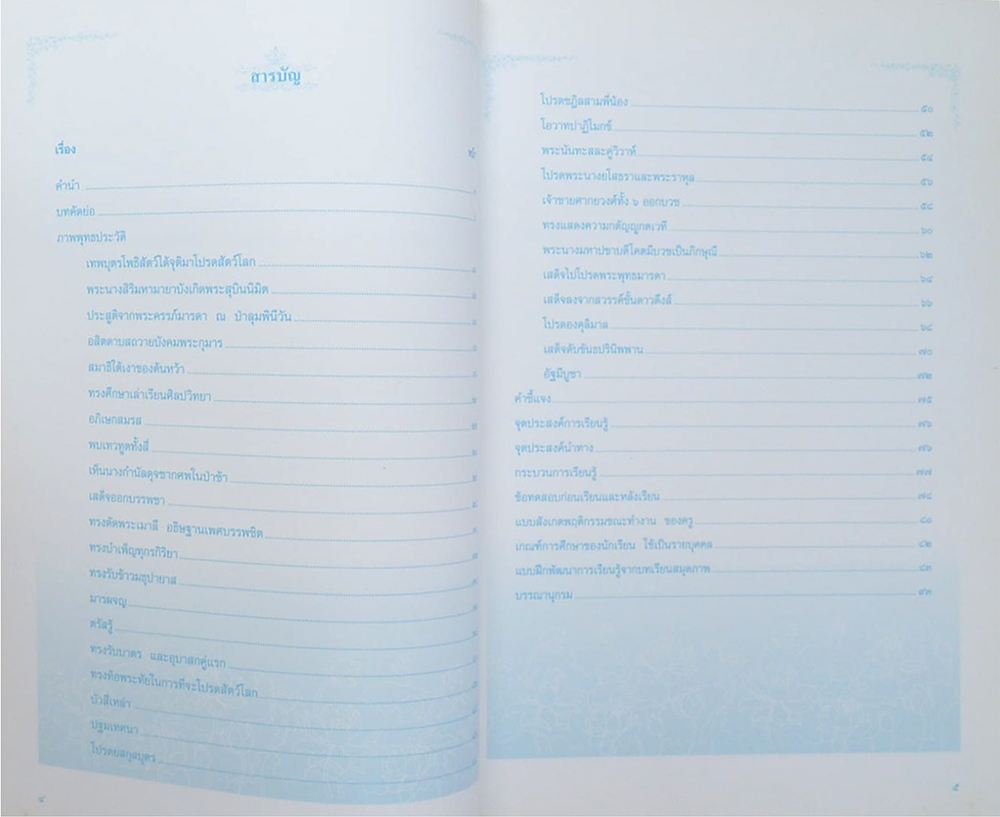 สารบัญ
เรื่อง
คำนำ
บทคัดย่อ
ภาพพุทธประวัติ
เทพบุตรโพธิสัตว์ได้จุติมาโปรดสัตว์โลก
พระนางสิริมหามายาบังเกิดพระสุบินนิมิต
ประสูติจากพระครรภ์มารดา ณ ป่าลุมพินีวัน
อสิตดาบสถวายบังคมพระกุมาร
สมาธิใต้เงาของต้นหว้า
ทรงศึกษาเล่าเรียนศิลปวิทยา
อภิเษกสมรส
พบเทวทูตทั้งสี่
เห็นนางกำนัลดุจซากศพในป่าช้า
เสด็จออกบรรพชา
ทรงตัดพระเมาลี อธิษฐานเพศบรรพชิต
ทรงบำเพ็ญทุกรกิริยา
ทรงรับข้าวมธุปายาส
มารผจญ
ตรัสรู้
ทรงรับบาตร และอุบาสกคู่แรก
ทรงท้อพระทัยในการที่จะโปรดสัตว์โลก
บัวสี่เหล่า
ปฐมเทศนา
โปรดยสกุลบุตร
๔
โปรดชฎิลสามพี่น้อง ๕๐
โอวาทปาฏิโมกข์ ๕๒
พระนันทะสละคู่วิวาห์ ๕๔
โปรดพระนางยโสธราและพระราหุล ๕๖
เจ้าชายศากยวงศ์ทั้ง ๖ ออกบวช ๕๘
ทรงแสดงความกตัญญูกตเวที ๖๐
พระนางมหาปชาบดีโคตมีบวชเป็นภิกษุณี ๖๒
เสด็จไปโปรดพระพุทธมารดา ๖๔
เสด็จลงจากสวรรค์ชั้นดาวดึงส์ ๖๖
โปรดองคุลิมาล ๖๘
เสด็จดับขันธปรินิพพาน ๗๐
อัฐมีบูชา ๗๒
คำชี้แจง ๗๕
จุดประสงค์การเรียนรู้ ๗๖
จุดประสงค์นำทาง ๗๖
กระบวนการเรียนรู้ ๗๗
ข้อทดสอบก่อนเรียนและหลังเรียน ๗๘
แบบสังเกตพฤติกรรมขณะทำงาน ของครู ๘๑
เกณฑ์การศึกษาของนักเรียน ใช้เป็นรายบุคคล ๘๒
แบบฝึกพัฒนาการเรียนรู้จากบทเรียนสมุดภาพ ๘๓
บรรณานุกรม ๙๓
๕